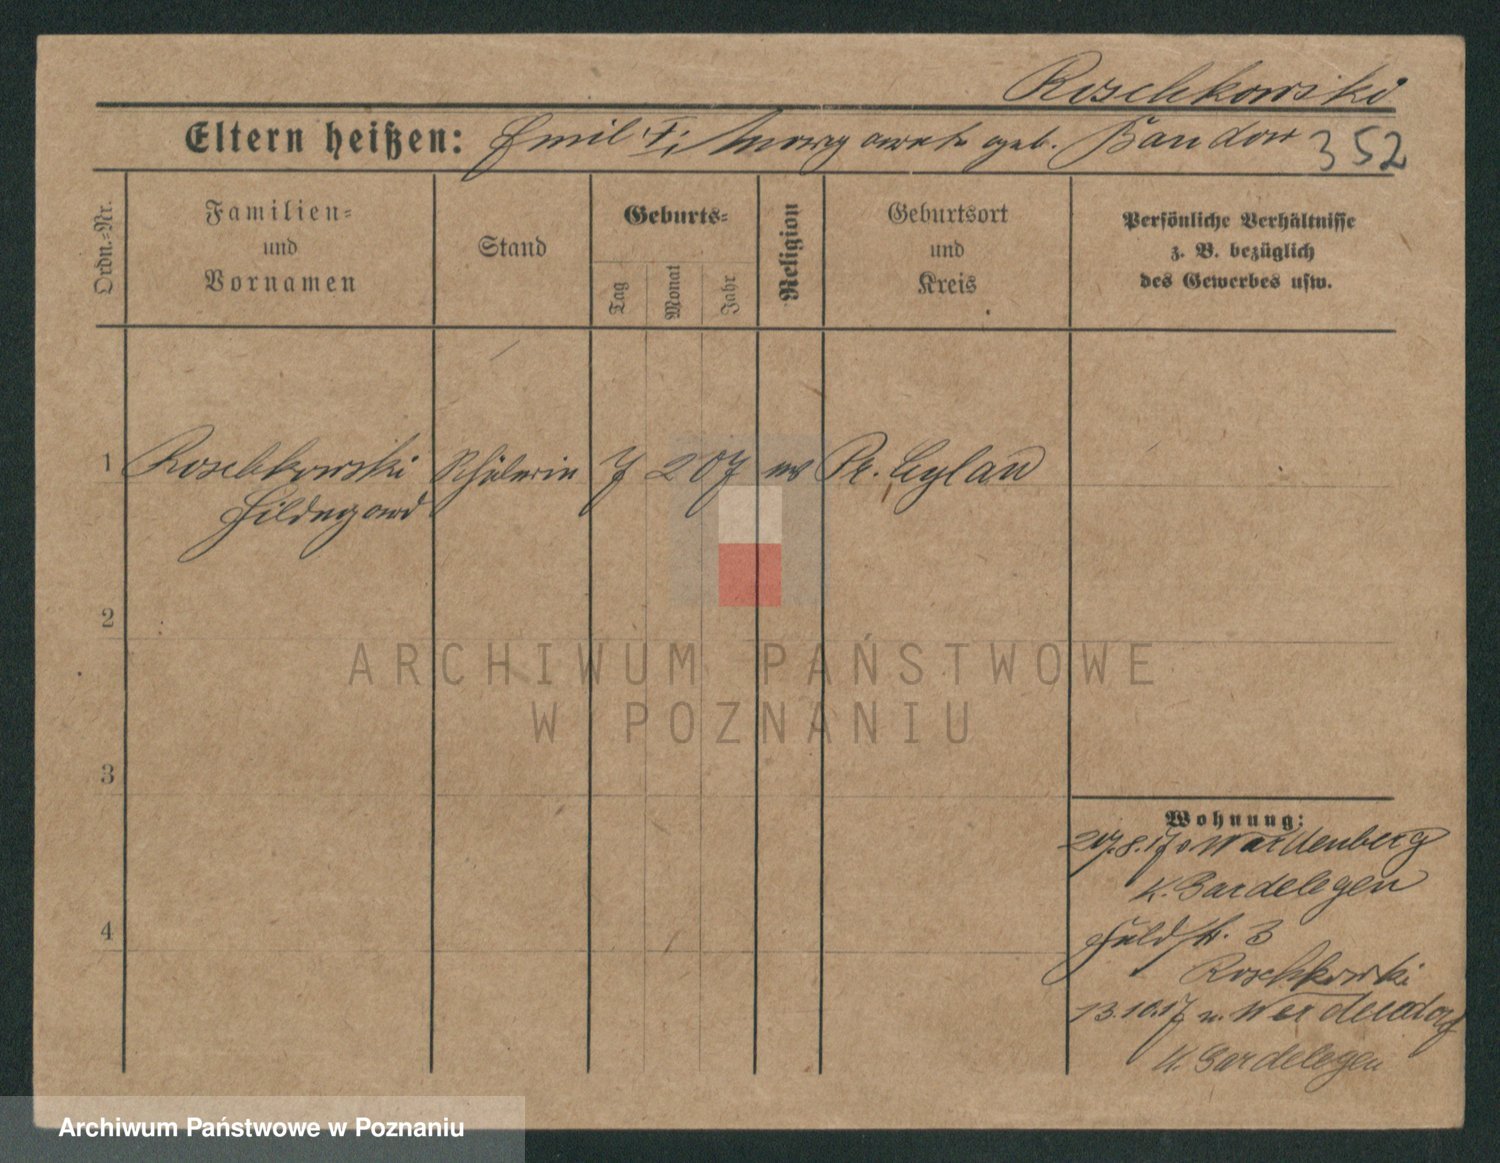 Roschkowski
Eltern heißen: Emil †; Margarete geb. Bandow 352
Ordn.=Nr.
Familien=
und
Vornamen
Stand
Geburts=
Tag
Monat
Jahr
Religion
Geburtsort
und
Kreis
Persönliche Verhältnisse
z. B. bezüglich
des Gewerbes usw.
1 Roschkowski Schülerin 7 2 07 ev Pr. Eylau
Hildegard
2
3
4
Wohnung:
27.8.17 v
K. Gardelegen
Feldstr. 3
Roschkowski
13.10.17 n.
K. Gardelegen
ARCHIWUM PAŃSTWOWE
W POZNANIU
Archiwum Państwowe w Poznaniu